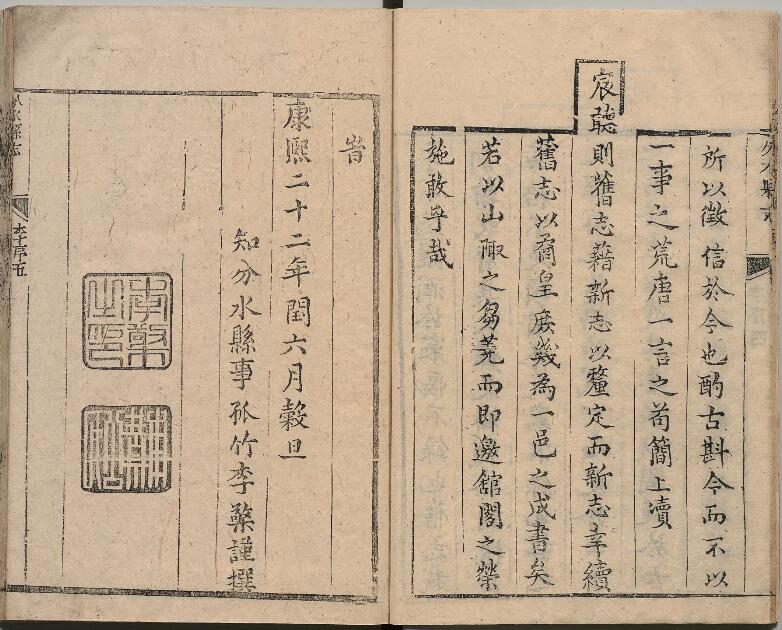 所以徵信於今也酌古斟今而不以
一事之荒唐一言之苟簡上瀆
宸聽則舊志藉新志以釐定而新志幸續
舊志以矞皇庶幾為一邑之成書矣
若以山陬之芻蕘而即邀館閣之榮
施敢乎哉
旹
康熙二十二年閏六月穀旦
知分水縣事孤竹李槃謹撰
李槃之印
分水縣志
李序五